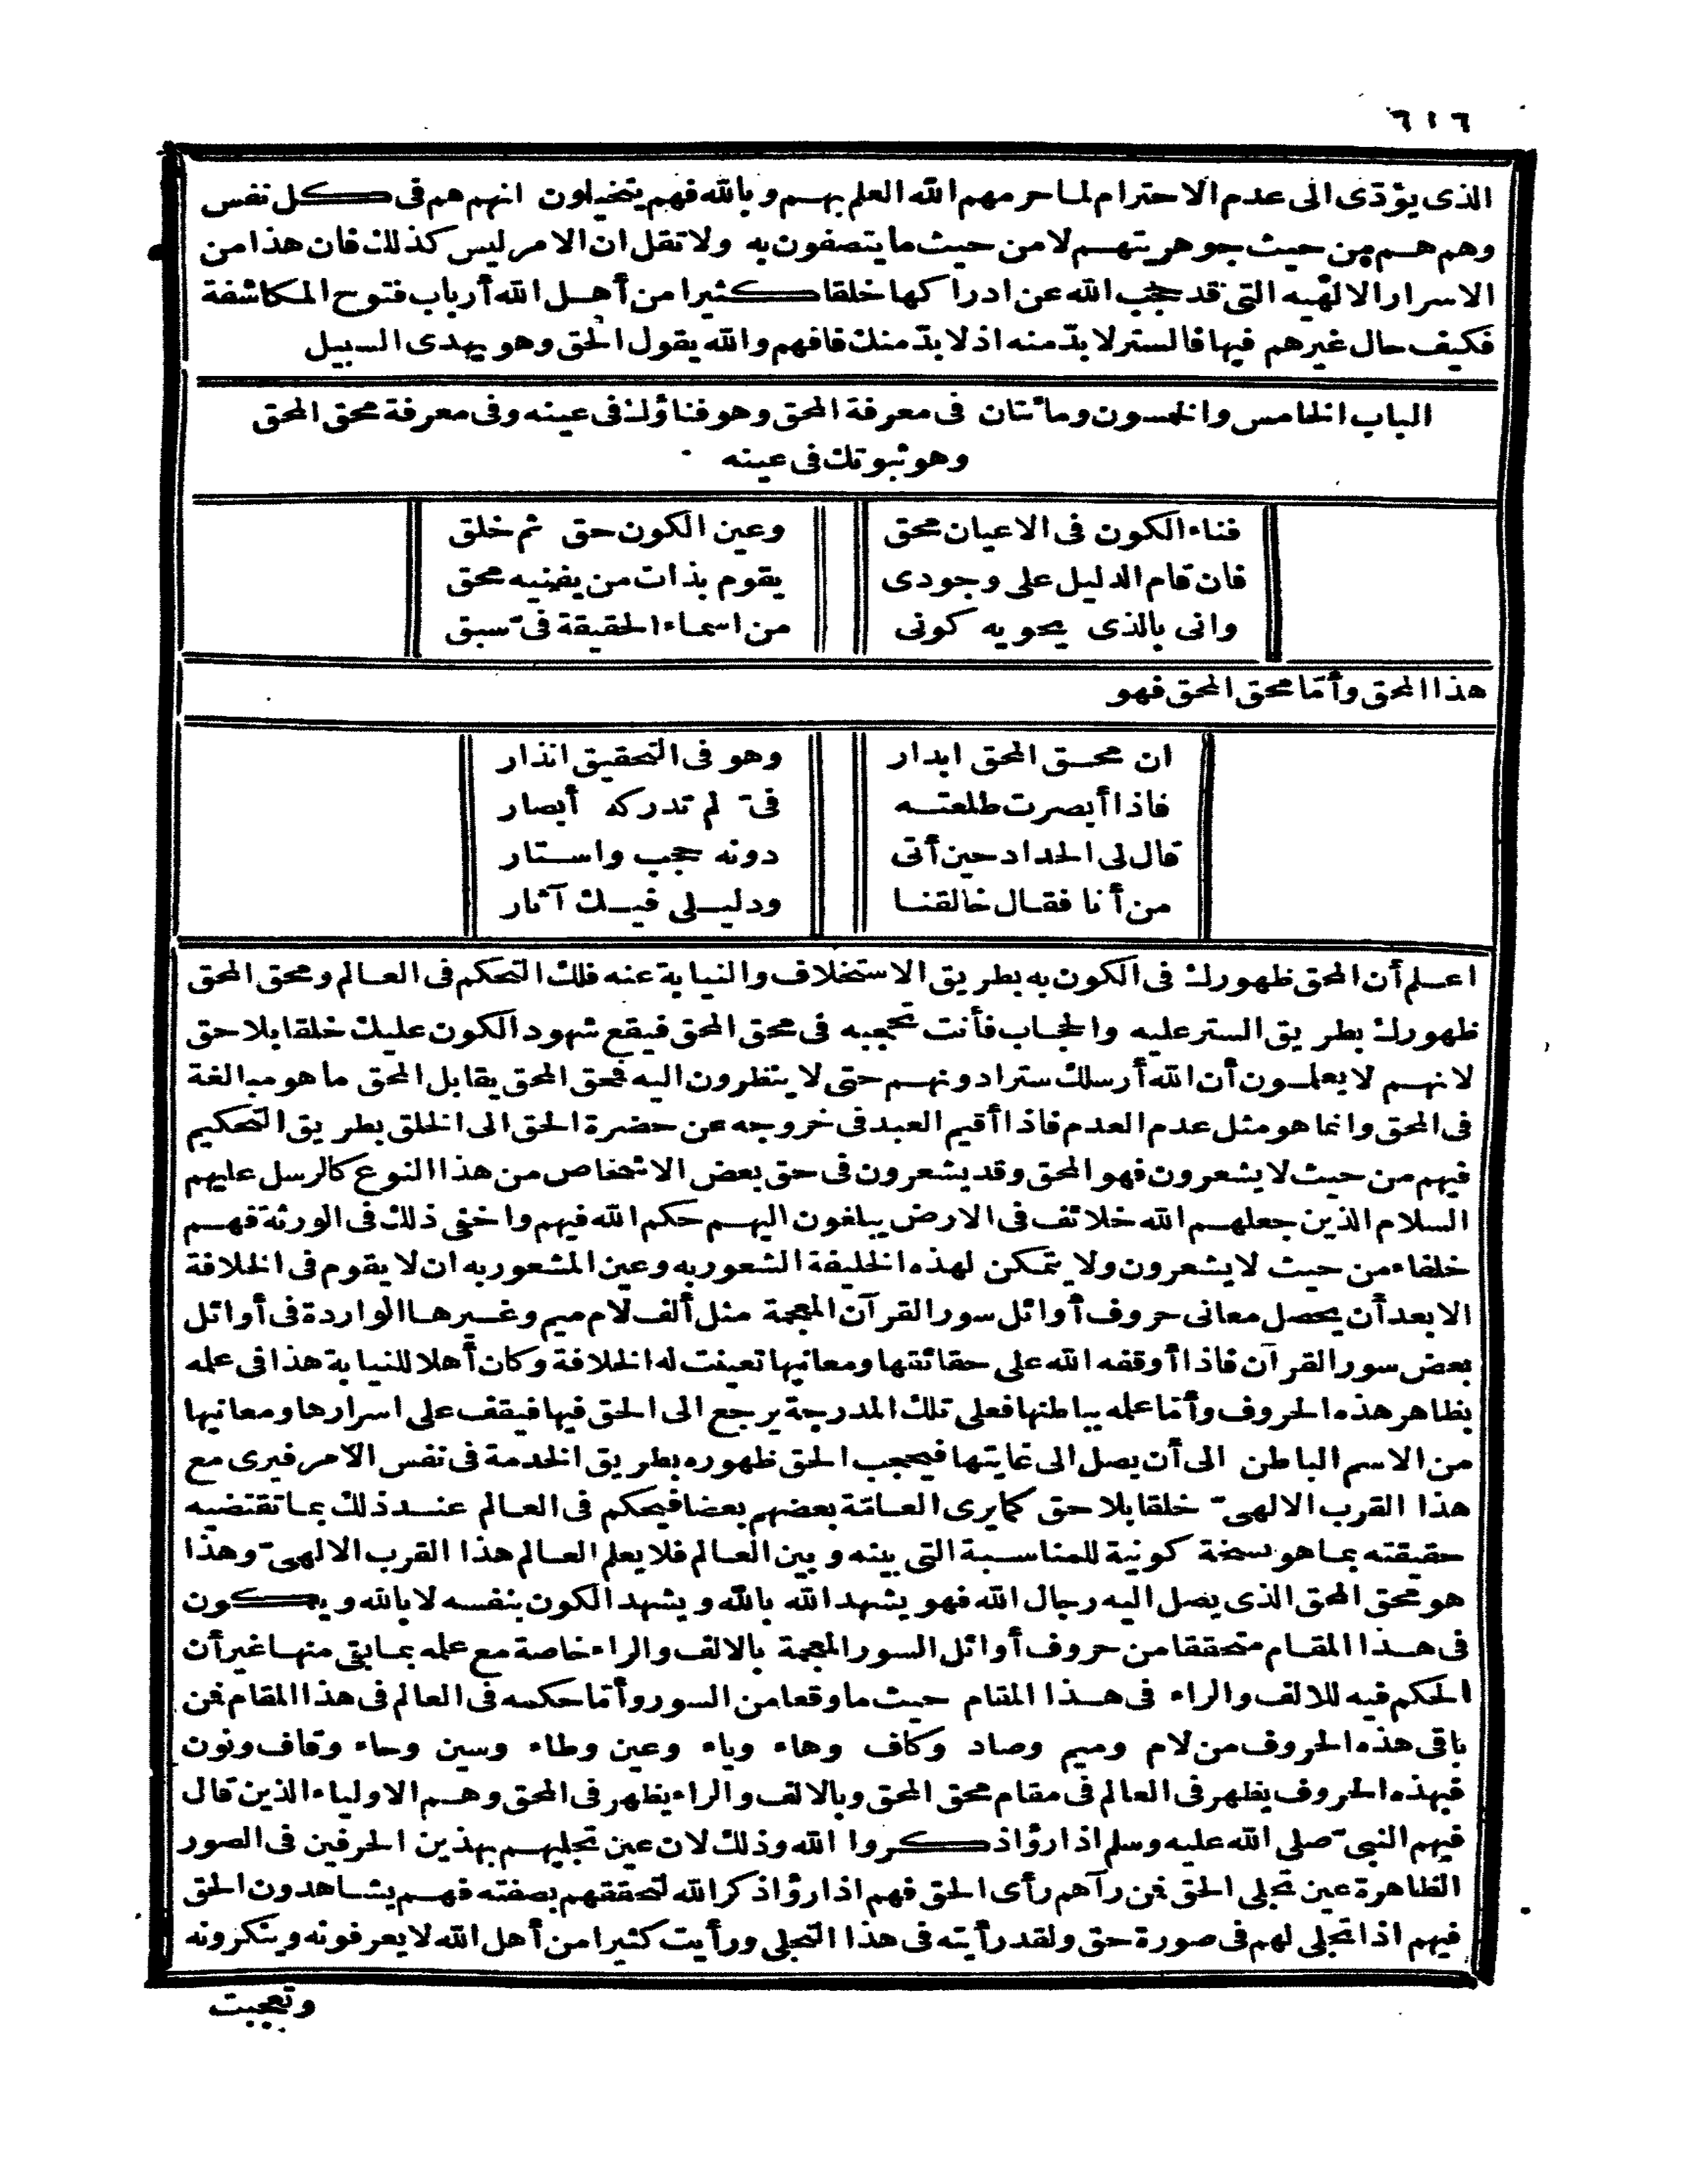 ٦١٦
الذى يؤدّى الى عدم الاحترام لما حرمهم الله العلم بهم وبالله فهم يتخيلون انهم هم فى كل نفس
وهم هم من حيث جوهريتهم لا من حيث ما يتصفون به ولا تقل ان الامر ليس كذلك فان هذا من
الاسرار الالهيه التى قد حجب الله عن ادراكها خلقا كثيرا من أهل الله أرباب فتوح المكاشفة
فكيف حال غيرهم فيها فالستر لا بدّ منه اذ لا بدّ منك فافهم والله يقول الحق وهو يهدى السبيل
الباب الخامس والخمسون ومائتان فى معرفة المحق وهو فناؤك فى عينه وفى معرفة محق المحق
وهو ثبوتك فى عينه
فناء الكون فى الاعيان محق وعين الكون حق ثم خلق
فان قام الدليل على وجودى يقوم بذات من يفنيه محق
وانى بالذى يحويه كونى من اسماء الحقيقة فىّ سبق
هذا المحق وأمّا محق المحق فهو
ان محق المحق ابدار وهو فى التحقيق انذار
فاذا أبصرت طلعته فىّ لم تدركه أبصار
قال لى الحداد حين أتى دونه حجب واستار
من أنا فقال خالقنا ودليلى فيك آثار
اعلم أن المحق ظهورك فى الكون به بطريق الاستخلاف والنيابة عنه فلك التحكم فى العالم ومحق المحق
ظهورك بطريق الستر عليه والحجاب فأنت تحجبه فى محق المحق فيقع شهود الكون عليك خلقا بلا حق
لانهم لا يعلمون أن الله أرسلك سترا دونهم حتى لا ينظرون اليه فمحق المحق يقابل المحق ما هو مبالغة
فى المحق وانما هو مثل عدم العدم فاذا أقيم العبد فى خروجه عن حضرة الحق الى الخلق بطريق التحكيم
فيهم من حيث لا يشعرون فهو المحق وقد يشعرون فى حق بعض الاشخاص من هذا النوع كالرسل عليهم
السلام الذين جعلهم الله خلائف فى الارض يبلغون اليهم حكم الله فيهم واخفى ذلك فى الورثة فهم
خلفاء من حيث لا يشعرون ولا يتمكن لهذه الخليفة الشعور به وعين المشعور به ان لا يقوم فى الخلافة
الا بعد أن يحصل معانى حروف أوائل سور القرآن المعجمة مثل ألف لام ميم وغيرها الواردة فى أوائل
بعض سور القرآن فاذا أوقفه الله على حقائقها ومعانيها تعينت له الخلافة وكان أهلا للنيابة هذا فى علمه
بظاهر هذه الحروف وأمّا علمه بباطنها فعلى تلك المدرجة يرجع الى الحق فيها فيقف على اسرارها ومعانيها
من الاسم الباطن الى أن يصل الى غايتها فيحجب الحق ظهوره بطريق الخدمة فى نفس الامر فيرى مع
هذا القرب الالهىّ خلقا بلا حق كما يرى العامّة بعضهم بعضا فيحكم فى العالم عند ذلك بما تقتضيه
حقيقته بما هو نسخة كونية للمناسبة التى بينه وبين العالم فلا يعلم العالم هذا القرب الالهىّ وهذا
هو محق المحق الذى يصل اليه رجال الله فهو يشهد الله بالله ويشهد الكون بنفسه لا بالله ويكون
فى هذا المقام متحققا من حروف أوائل السور المعجمة بالالف والراء خاصة مع علمه بما بقى منها غير أن
الحكم فيه للالف والراء فى هذا المقام حيث ما وقعا من السور وأمّا حكمه فى العالم فى هذا المقام فمن
باقى هذه الحروف من لام وميم وصاد وكاف وهاء وياء وعين وطاء وسين وحاء وقاف ونون
فبهذه الحروف يظهر فى العالم فى مقام محق المحق وبالالف والراء يظهر فى المحق وهم الاولياء الذين قال
فيهم النبىّ صلى الله عليه وسلم اذا رؤا ذكروا الله وذلك لان عين تجليهم بهذين الحرفين فى الصور
الظاهرة عين تجلى الحق فمن رآهم رأى الحق فهم اذا رؤا ذكر الله لتحققهم بصفته فهم يشاهدون الحق
فيهم اذا تجلى لهم فى صورة حق ولقد رأيته فى هذا التجلى ورأيت كثيرا من أهل الله لا يعرفونه وينكرونه
وتعجبت